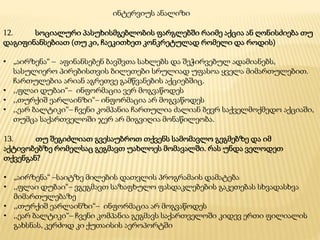 ინტერვიუს ანალიზი
12. სოციალური პასუხისმგებლობის ფარგლებში რაიმე აქცია ან ღონისძიება თუ
დაგიფინანსებიათ (თუ კი, ჩაგვითხეთ კონკრეტულად რომელი და როდის)
• „აირზენა“ – აფინანსებენ ბავშვთა სახლებს და შეჭირვებულ ადამიანებს,
სასულიერო პირებისთვის ბილეთები სრულიად უფასოა ყველა მიმართულებით.
ჩართულებია არიან აგრეთვე გამწვანების აქციებშიც.
• „ფლაი დუბაი“– ინფორმაცია ვერ მოგვაწოდეს
• „თურქიშ ეარლაინზი“– ინფორმაცია არ მოგვაწოდეს
• „ეარ ბალტიკი“– ჩვენი კომპანია ჩართულია ძალიან ბევრ საქველმოქმედო აქციაში,
თუმცა საქართველოში ჯერ არ მიგვიღია მონაწილეობა.
13. თუ შეგიძლიათ გვესაუბროთ თქვენს სამომავლო გეგმებზე და იმ
აქტივობებზე რომელსაც გეგმავთ უახლოეს მომავალში. რას უნდა ველოდეთ
თქვენგან?
• „აირზენა“ –საიტზე მილების დათვლის პროგრამის დამატება
• „ფლაი დუბაი“– ვგეგმავთ საზაფხულო ფასდაკლებების გაკეთებას სხვადასხვა
მიმართულებაზე
• „თურქიშ ეარლაინზი“– ინფორმაცია არ მოგვაწოდეს
• „ეარ ბალტიკი“– ჩვენი კომპანია გეგმავს საქართველოში კიდევ ერთი ფილიალის
გახსნას, კერძოდ კი ქუთაისის აეროპორტში